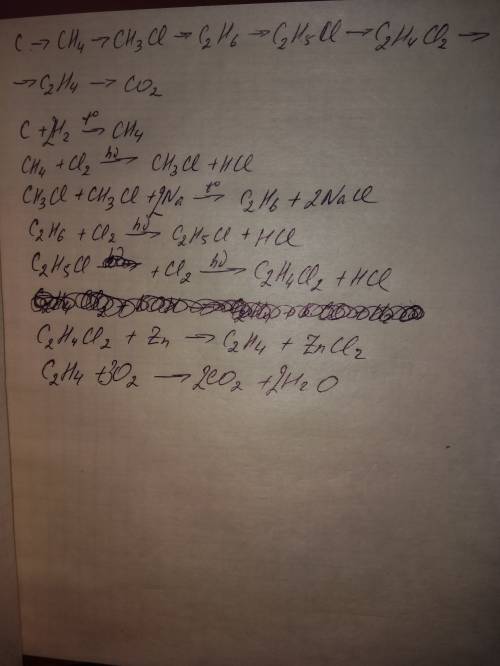 C → CH4 → CH3Cl → C2H6 → C2H5Cl → C2H4Cl2 →
→ C2H4 → CO2
C + 2H2 t°→ CH4
CH4 + Cl2 hν→ CH3Cl + HCl
CH3Cl + CH3Cl + 2Na t°→ C2H6 + 2NaCl
C2H6 + Cl2 hν→ C2H5Cl + HCl
C2H5Cl + Cl2 hν→ C2H4Cl2 + HCl
C2H4Cl2 + Zn → C2H4 + ZnCl2
C2H4 + 3O2 → 2CO2 + 2H2O